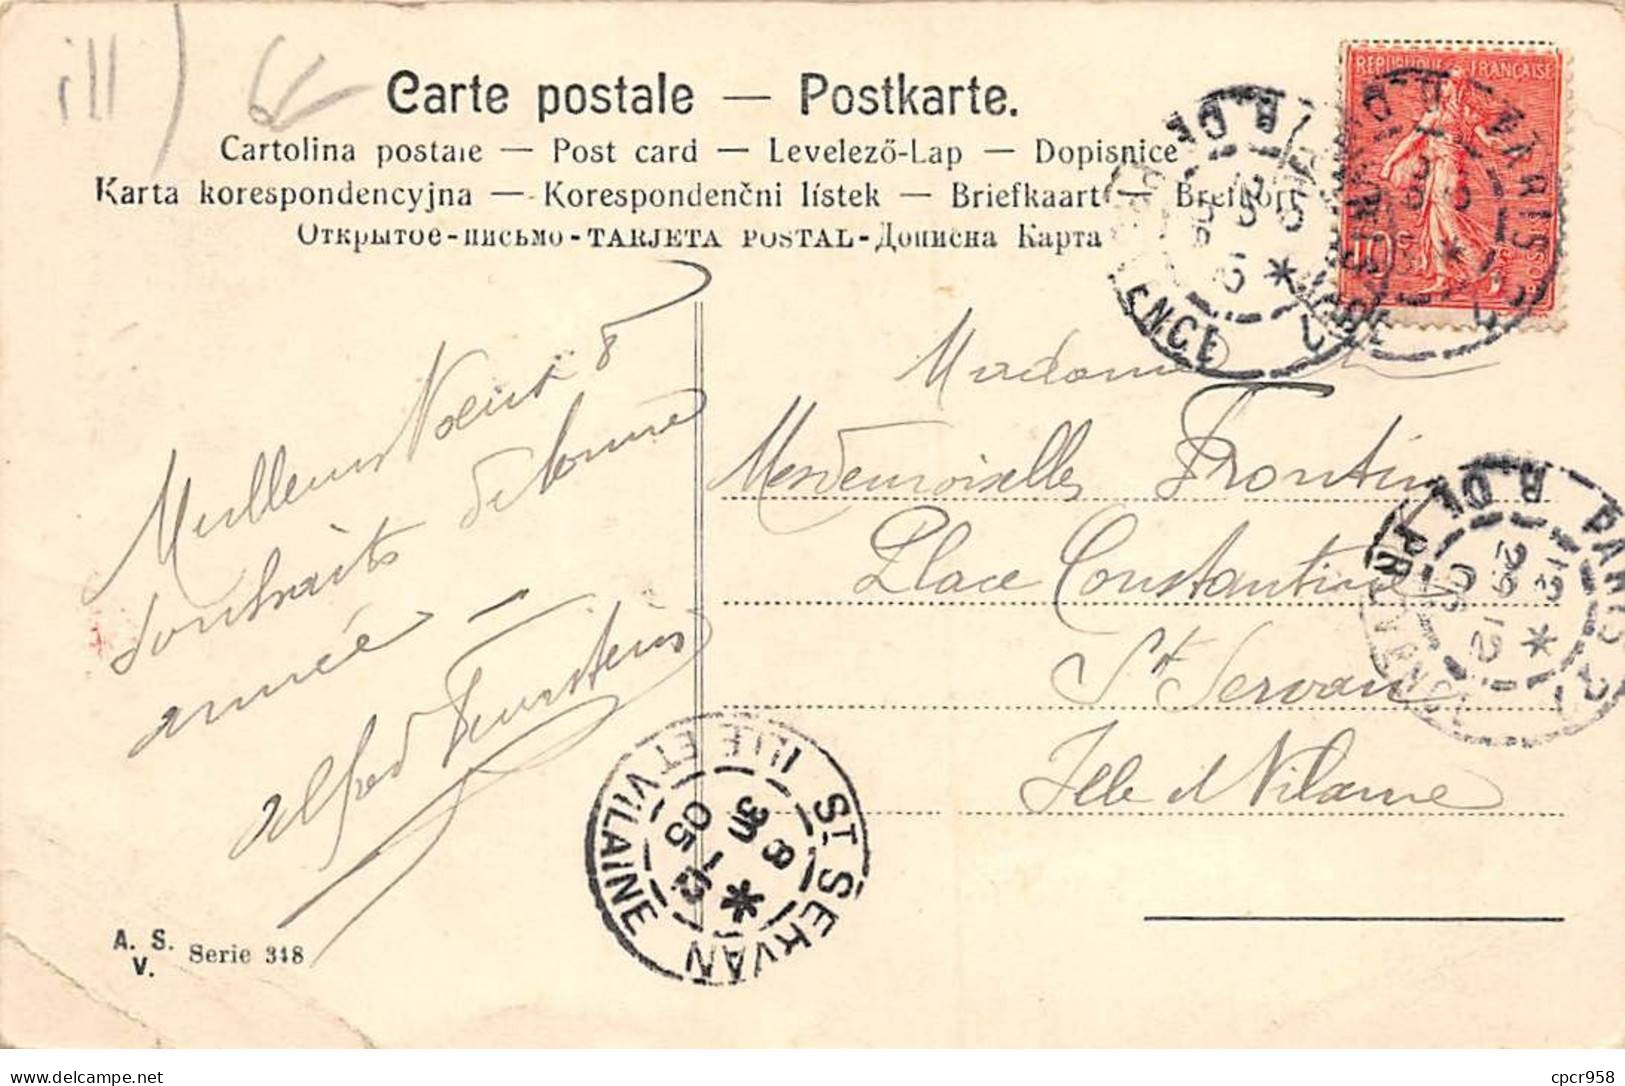 ill)
Carte postale — Postkarte.
Cartolina postale — Post card — Levelező-Lap — Dopisnice
Karta korespondencyjna — Korespondenčni lístek — Briefkaart — Brefkort
Открытое-письмо-TARJETA POSTAL-Дописна Карта
REPUBLIQUE FRANÇAISE
10
PARIS
R. DE PROVENCE
Meilleurs Voeux &
souhaits de bonne
année —
Alfred
Madame
Mesdemoiselles Frontin
Place Constantine
St Servan
Ille et Vilaine
PARIS
R. DE PROVENCE
ST SERVAN
ILLE ET VILAINE
A. S.
V.
Serie 348
delcampe.net
cpcr958